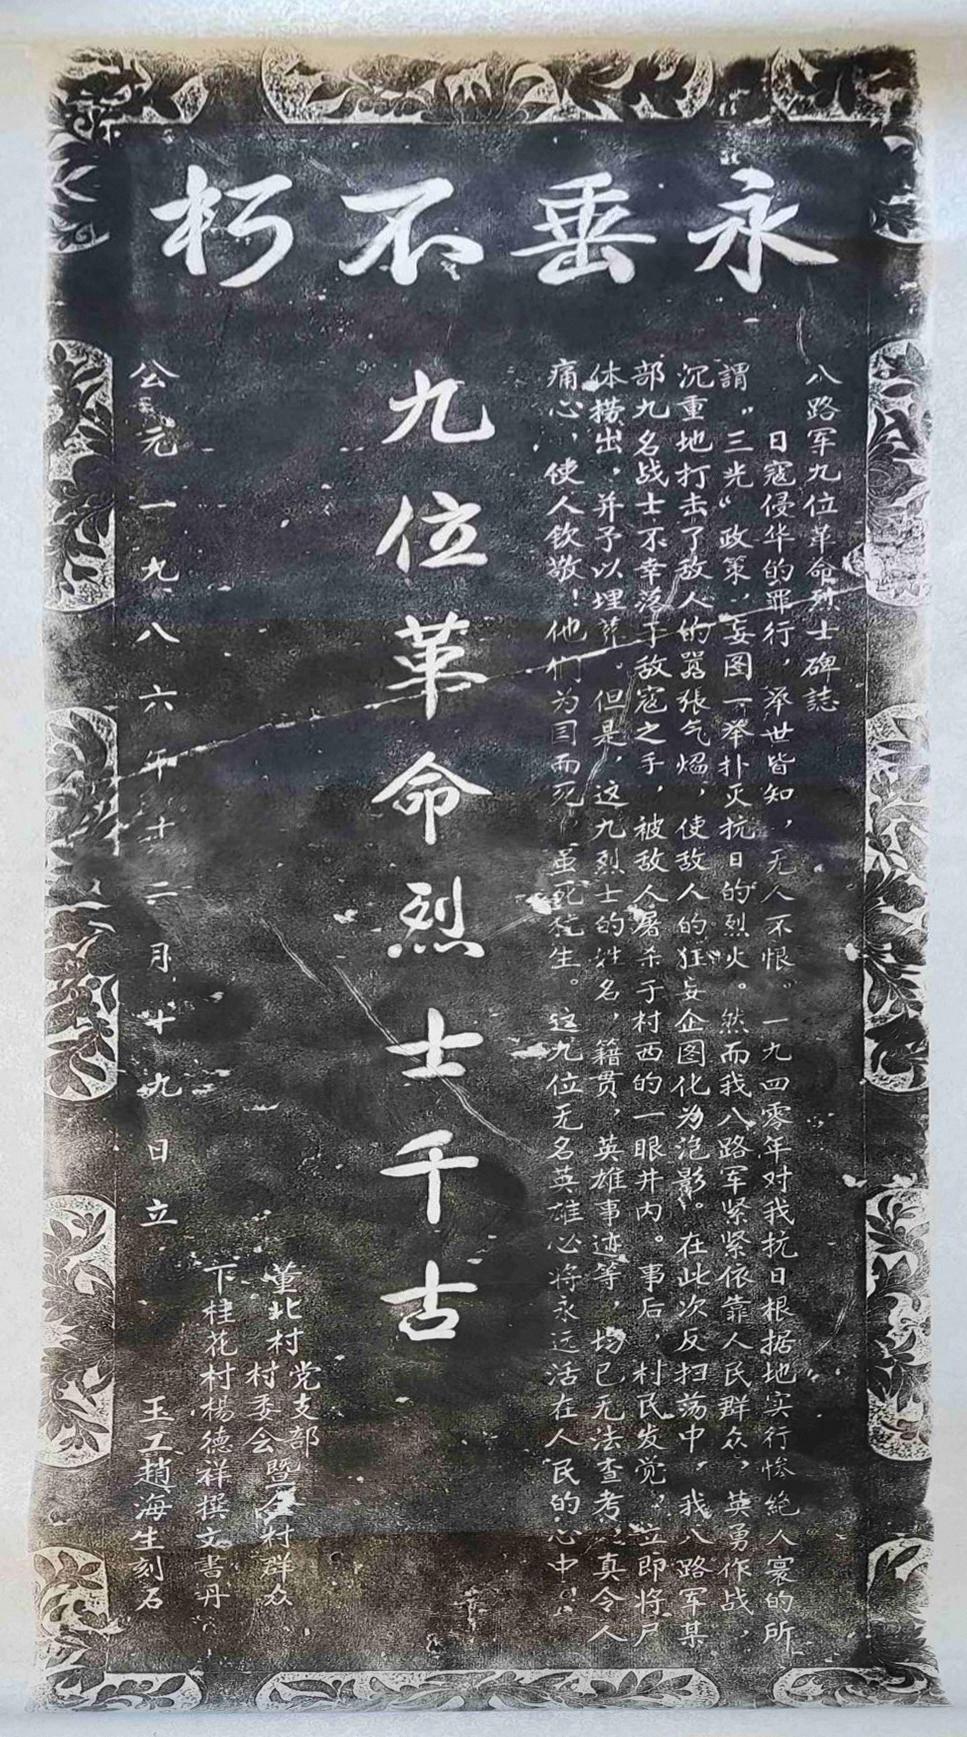 永垂不朽
八路军九位革命烈士碑誌
日寇侵华的罪行，举世皆知，无人不恨。一九四零年对我抗日根据地实行惨绝人寰的所
謂“三光”政策，妄图一举扑灭抗日的烈火。然而我八路军紧紧依靠人民群众，英勇作战，
沉重地打击了敌人的嚣张气焰，使敌人的狂妄企图化为泡影。在此次反扫荡中，我八路军某
部九名战士不幸落于敌寇之手，被敌人屠杀于村西的一眼井内。事后，村民发觉，立即将尸
体捞出，并予以埋葬。但是，这九烈士的姓名，籍贯，英雄事迹等，均已无法查考，真令人
痛心，使人钦敬！他们为国而死，虽死犹生。这九位无名英雄必将永远活在人民的心中！
九位革命烈士千古
董北村党支部
村委会暨全村群众
下桂花村楊德祥撰文书丹
玉工趙海生刻石
公元一九八六年十二月十九日立